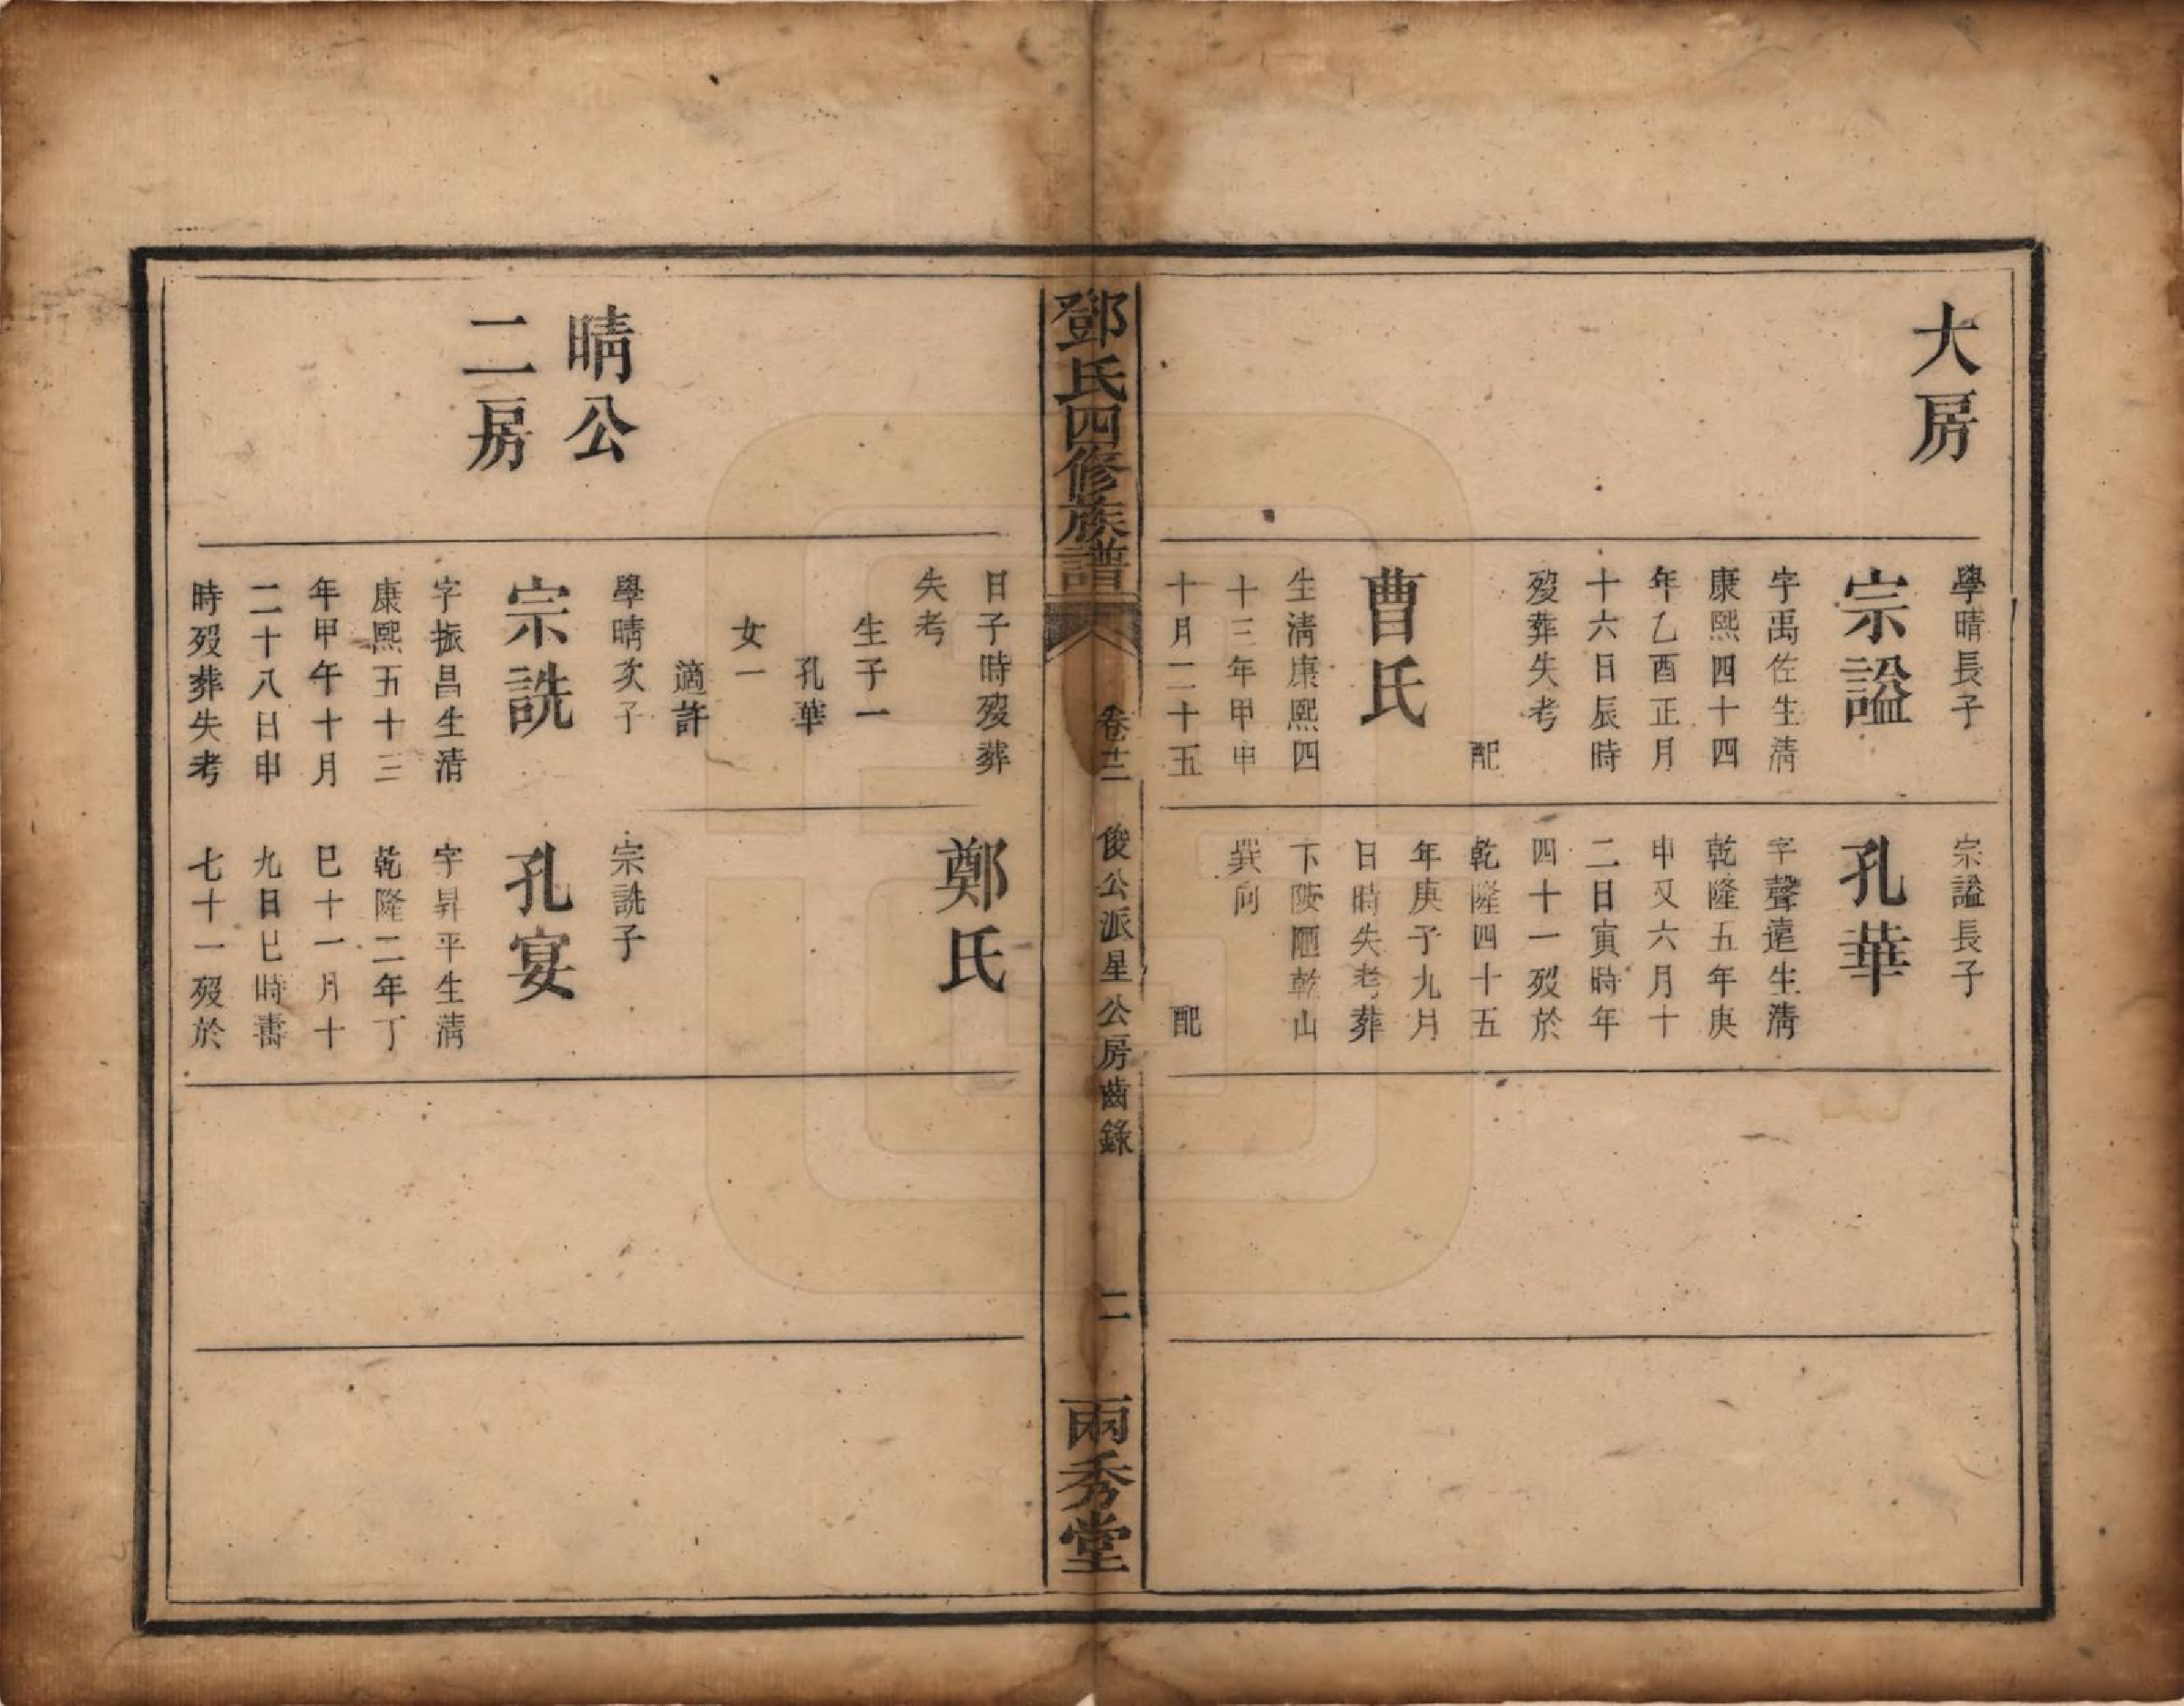 大房
學晴長子
宗謚
字禹佐生清
康熙四十四
年乙酉正月
十六日辰時
歿葬失考
配
曹氏
生清康熙四
十三年甲申
十月二十五
宗謚長子
孔華
字聲遠生清
乾隆五年庚
申又六月十
二日寅時年
四十一歿於
乾隆四十五
年庚子九月
日時失考葬
下陂陋乾山
巽向
配
鄧氏四修族譜
卷十二
俊公派星公房齒錄
二
兩秀堂
日子時歿葬
失考
生子一
孔華
女一
適許
鄭氏
晴公
二房
學晴次子
宗詵
字振昌生清
康熙五十三
年甲午十月
二十八日申
時歿葬失考
宗詵子
孔宴
字昇平生清
乾隆二年丁
巳十一月十
九日巳時壽
七十一歿於